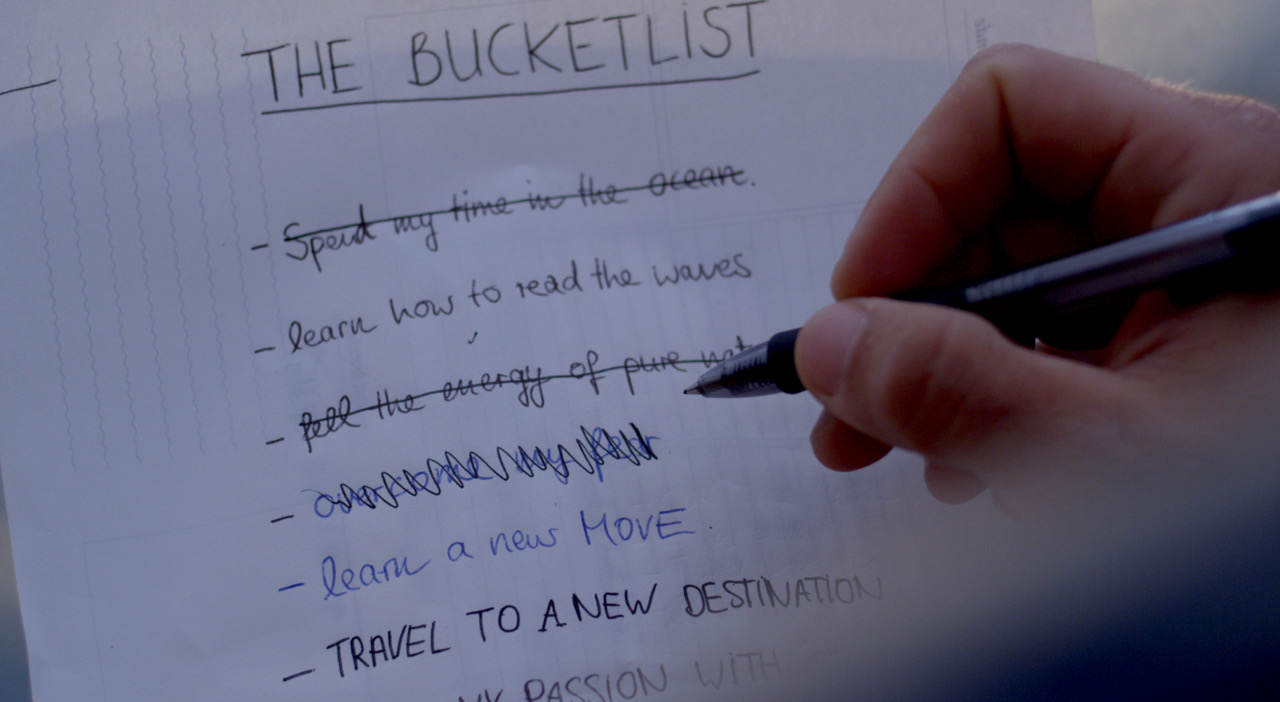 THE BUCKETLIST
- Spend my time in the ocean.
- learn how to read the waves
- feel the energy of pure
- overcome my fear
- learn a new MOVE.
- TRAVEL TO A NEW DESTINATION
MY PASSION WITH